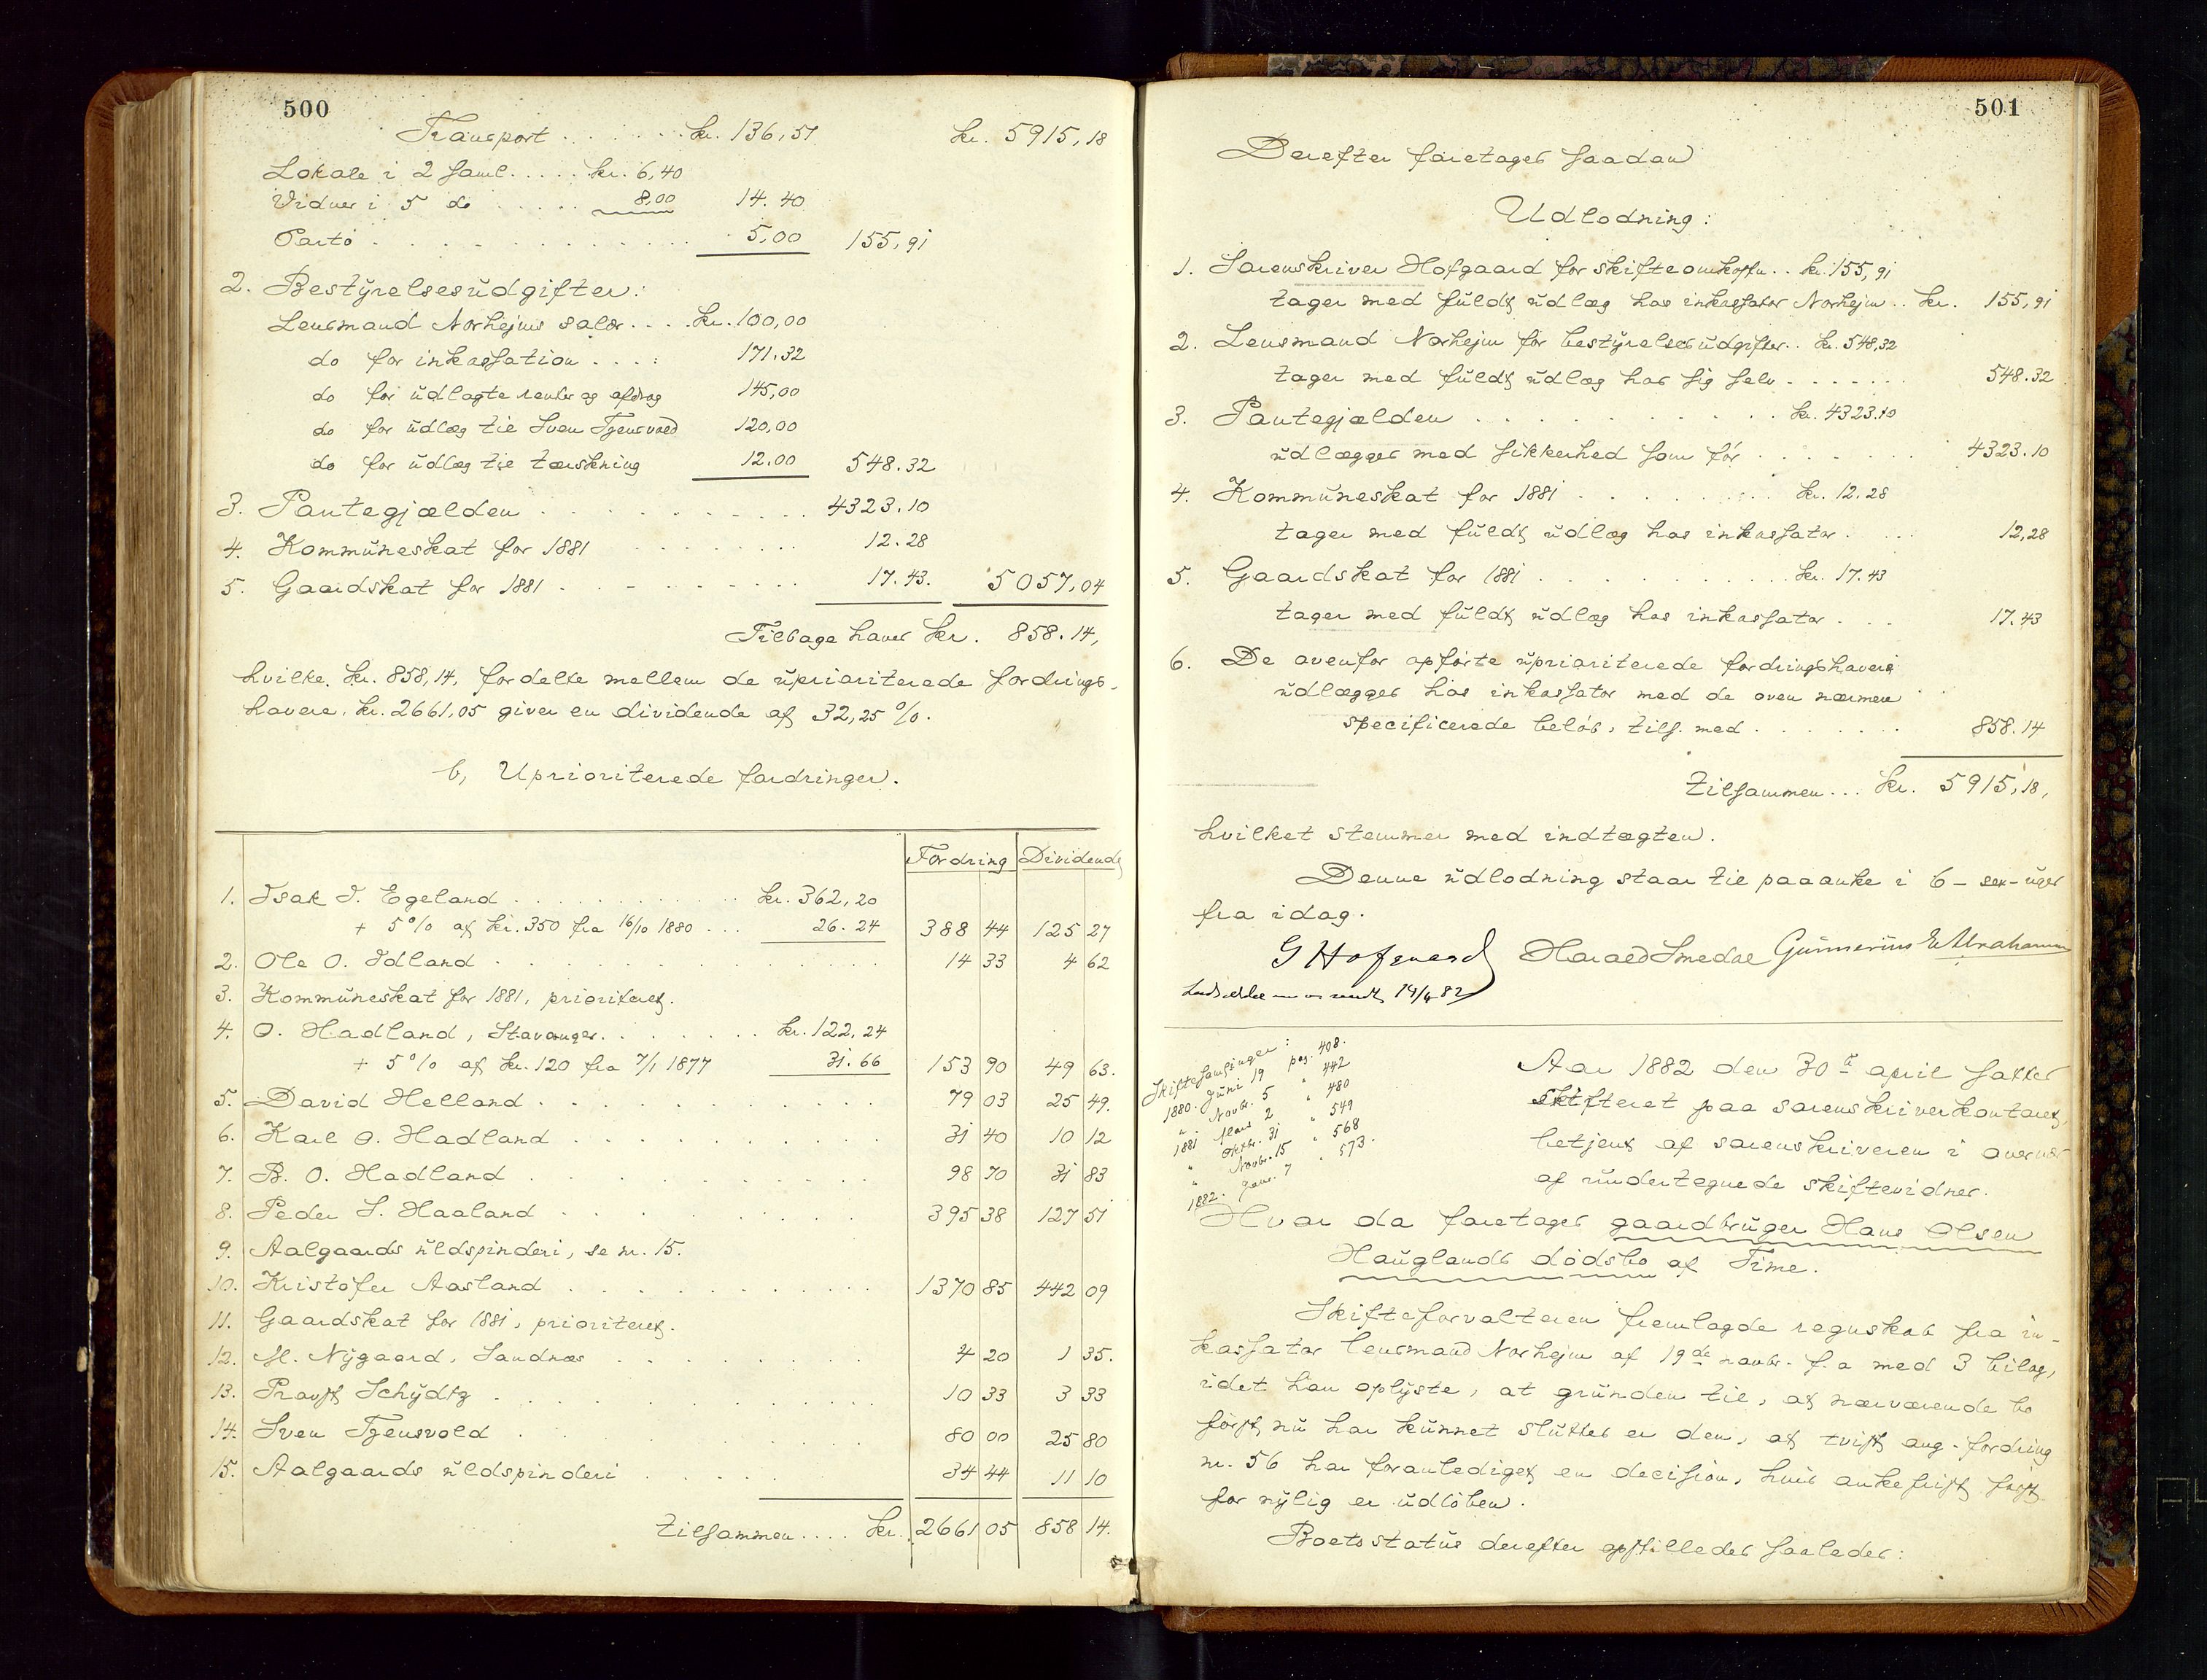 500
Transport . . . . . . kr. 136,51 kr. 5915,18
Lokale i 2 saml. . . . . kr. 6,40
Vidner i 5 do . . . . . 8,00 14.40
Porto . . . . . . . . . . . . 5,00 155,91
2. Bestyrelsesudgifter:
Lensmand Norhejms salær . . . kr. 100,00
do for inkassation . . . : 171.32
do for udlagte renter og afdrag 145,00
do for udlæg til Sven Tjensvold 120,00
do for udlæg til tærskning 12.00 548.32
3. Pantegjælden . . . . . . . . . 4323.10
4. Kommuneskat for 1881 . . . . . . . 12.28
5. Gaardskat for 1881 . . . . . . . 17.43. 5057,04
Tilbage haves kr. 858.14,
hvilke kr. 858,14, fordelte mellem de uprioriterede fordrings-
havere, kr. 2661,05 giver en dividende af 32,25 %.
b, Uprioriterede fordringer.
Fordring Dividende
1. Isak I. Egeland . . . . . . . . . . kr. 362,20
+ 5% af kr. 350 fra 16/10 1880 . . . 26.24 388 44 125 27
2. Ole O. Idland . . . . . . . . . . 14 33 4 62
3. Kommuneskat for 1881, prioriteret.
4. O. Hadland, Stavanger. . . . . . . kr. 122,24
+ 5% af kr. 120 fra 7/1 1877 31.66 153 90 49 63.
5. David Helland . . . . . . . . . . 79 03 25 49.
6. Karl O. Hadland . . . . . . . . . 31 40 10 12
7. B. O. Hadland . . . . . . . . . . 98 70 31 83
8. Peder S. Haaland . . . . . . . . 395 38 127 51
9. Aalgaards uldspinderi, se nr. 15.
10. Kristofer Aasland . . . . . . . . . 1370 85 442 09
11. Gaardskat for 1881, prioriteret.
12. M. Nygaard, Sandnæs . . . . . . . 4 20 1 35.
13. Provst Schydtz . . . . . . . . . . 10 33 3 33
14. Sven Tjensvold . . . . . . . . . 80 00 25 80
15. Aalgaards uldspinderi . . . . . 34 44 11 10
tilsammen . . . . kr. 2661 05 858 14.
501
Derefter foretages saadan
Udlodning:
1. Sorenskriver Hofgaard for skifteomkostn. . . kr. 155,91
tager med fuldt udlæg hos inkassator Norhejm . . kr. 155,91
2. Lensmand Norhejm for bestyrelsesudgifter . . kr. 548,32
tager med fuldt udlæg hos sig selv . . . . . . . 548.32
3. Pantegjælden . . . . . . . . . . kr. 4323.10
udlægges med sikkerhed som før . . . . . . . 4323.10
4. Kommuneskat for 1881 . . . . . . . . kr. 12.28
tager med fuldt udlæg hos inkassator . . . . 12,28
5. Gaardskat for 1881 . . . . . . . . . . kr. 17.43
tager med fuldt udlæg hos inkassator . . . 17.43
6. De ovenfor opførte uprioriterede fordringshavere
udlægges hos inkassator med de oven nærmere
specificerede beløb, tils. med . . . . . . . 858.14
tilsammen . . . kr. 5915,18,
hvilket stemmer med indtægten.
Denne udlodning staar til paaanke i 6 - sex - uger
fra idag.
G Hofgaard Harald Smedal Gunnerius E Abrahamsen
19/6 82
Skiftesamlinger:
1880. Juni 19 pag. 408.
" Novbr. 5 " 442
1881 Mars 2 " 480
" Oktbr. 31 " 549
" Novbr. 15 " 568
1882. Janr. 7 " 573.
Aar 1882 den 30te april sattes
skifteret paa sorenskriverkontoret,
betjent af sorenskriveren i overvær
af undertegnede skiftevidner.
Hvor da foretages gaardbruger Hans Olsen
Hauglands dødsbo af Time.
Skifteforvalteren fremlagde regnskab fra in-
kassator lensmand Norhejm af 19de novbr. f. a med 3 bilag,
idet han oplyste, at grunden til, at nærværende bo
først nu har kunnet sluttes er den, at tvist ang. fordring
nr. 56 har foranlediget en decision, hvis ankefrist først
for nylig er udløben.
Boets status derefter opstilledes saaledes: